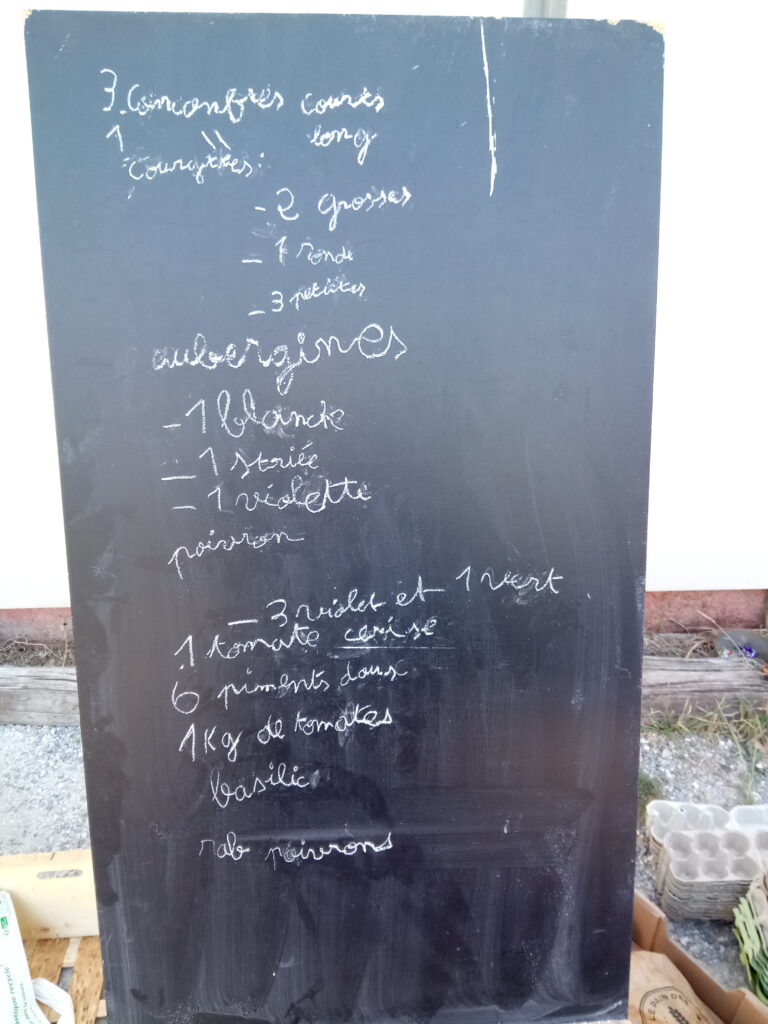 3. Concombres courts
1 \\ long
courgttes:
- 2 grosses
- 1 ronde
- 3 petites
aubergines
- 1 blanche
- 1 striée
- 1 violette
poivron
- 3 violet et 1 vert
1 tomate cerise
6 piments doux
1Kg de tomates
basilic
rab poivrons
LE PAIN DES